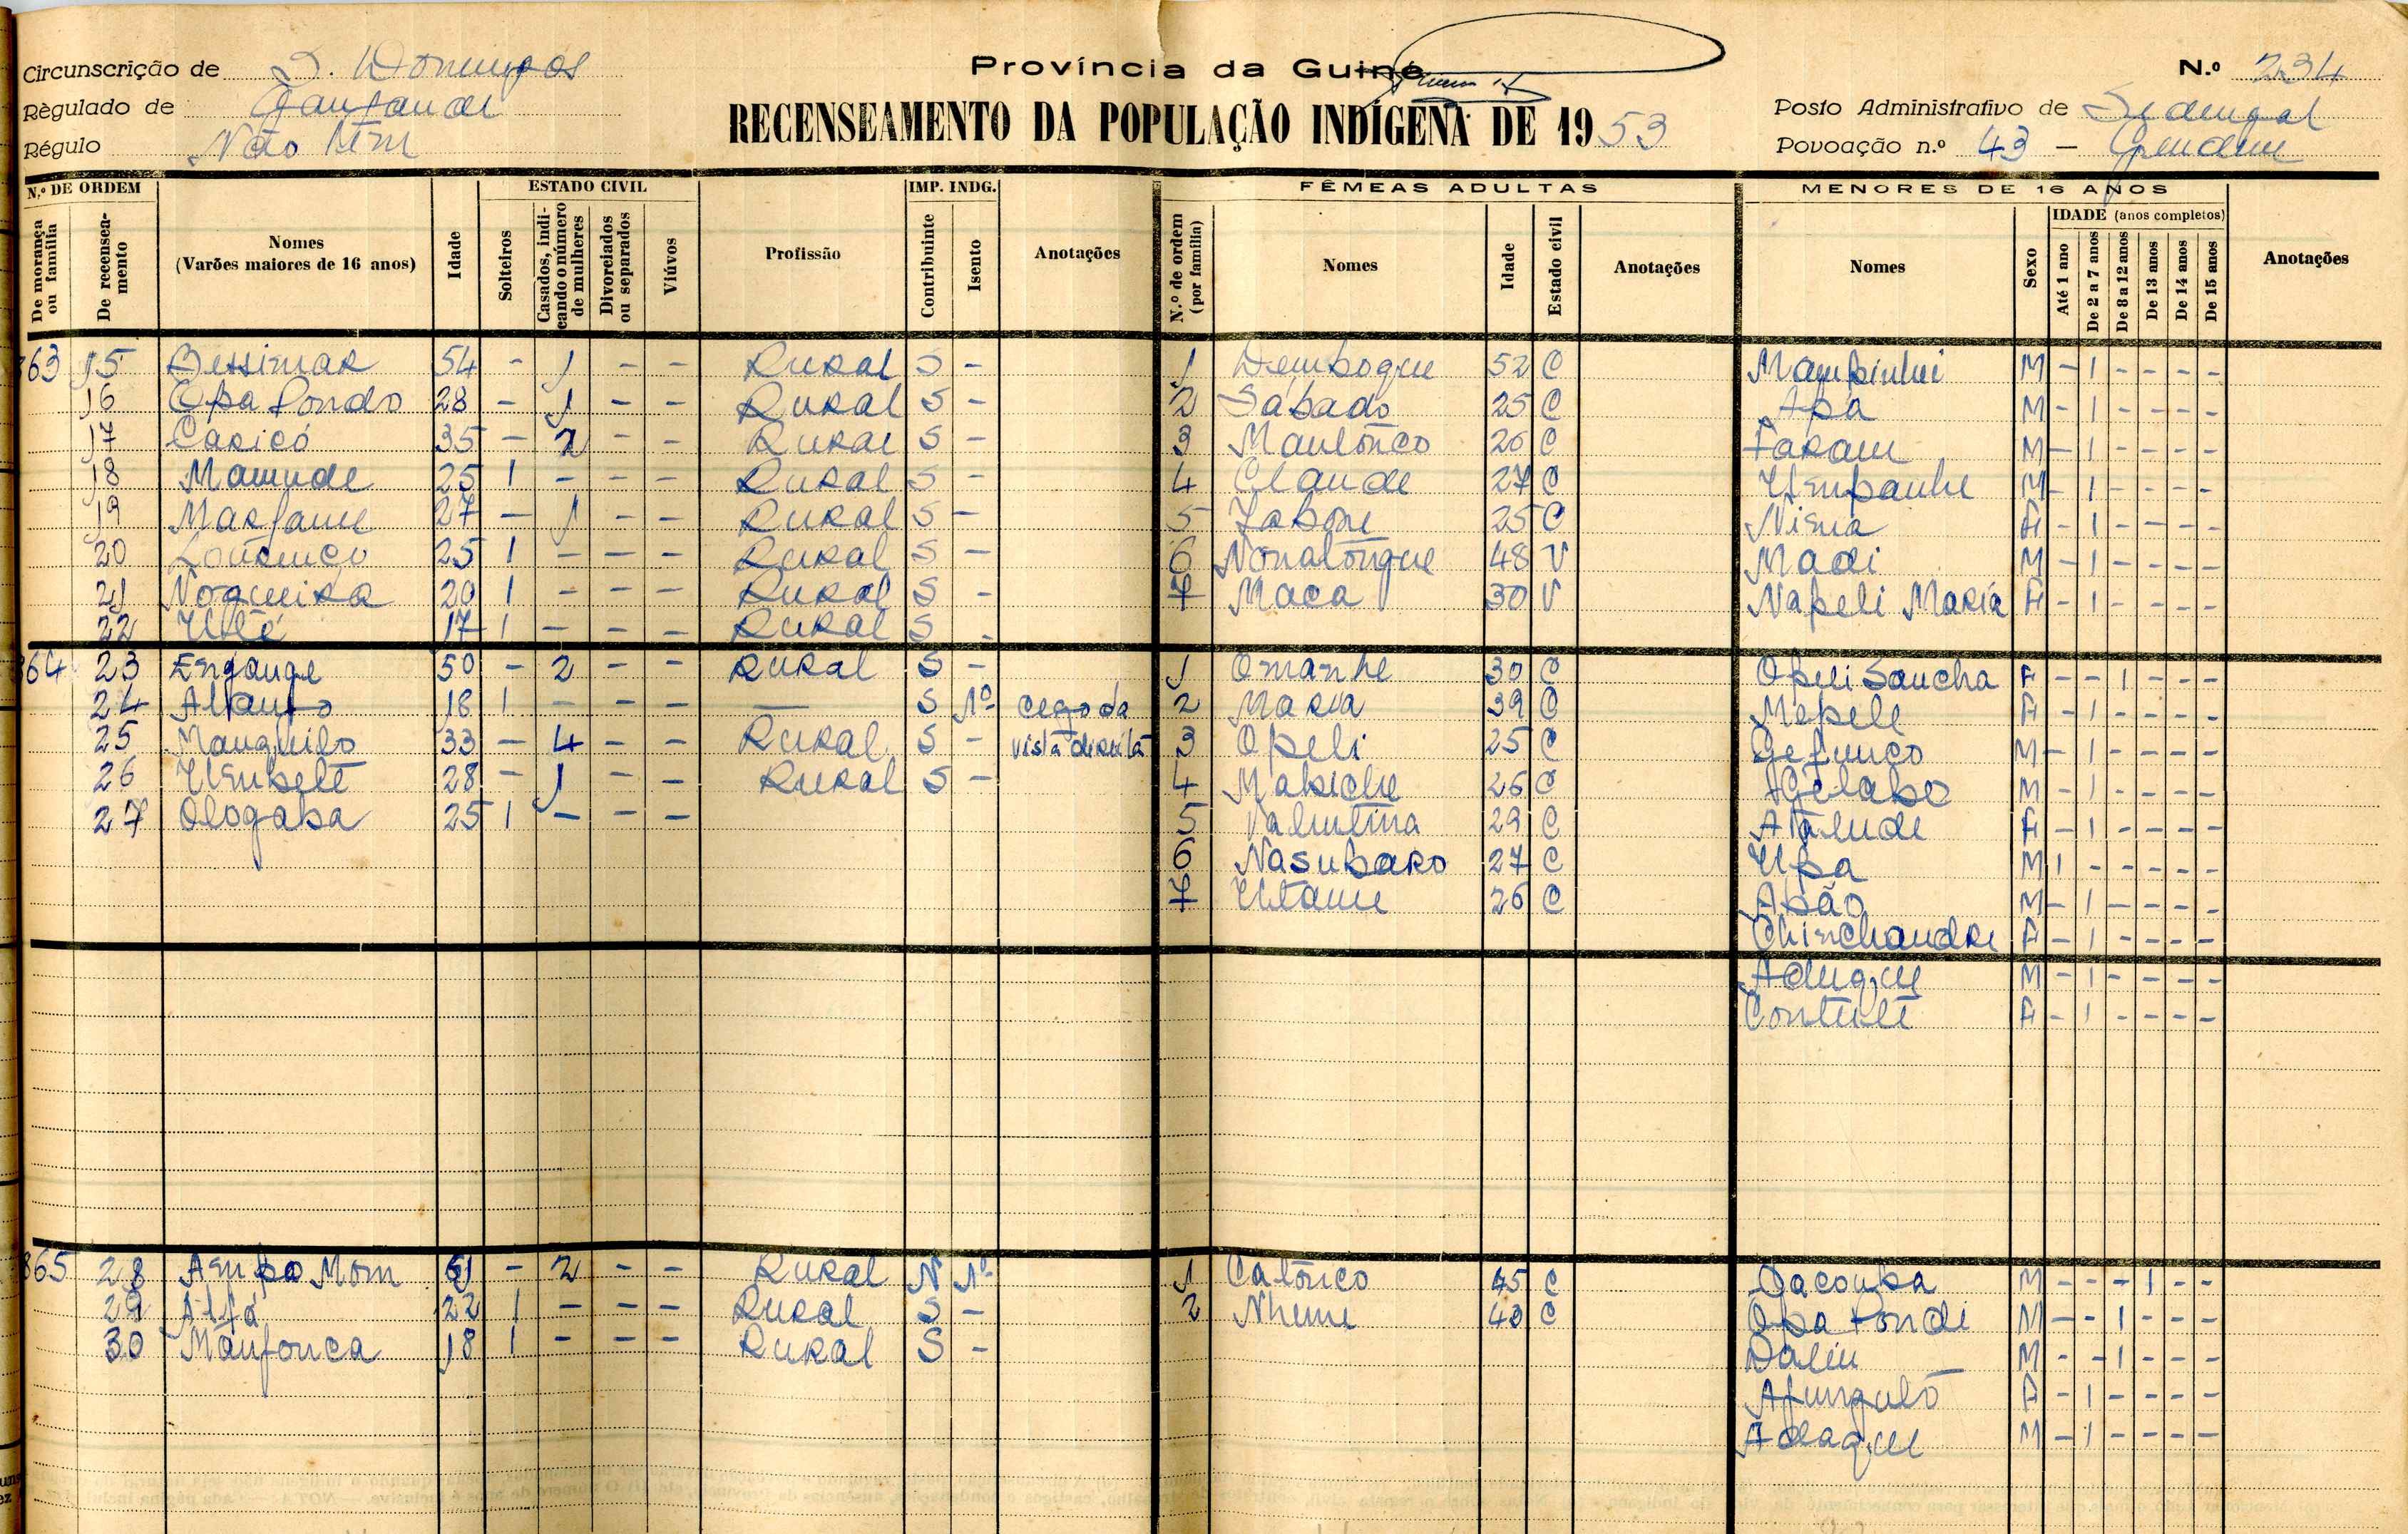 Circunscrição de S. Domingos
Província da Guiné
N.º 234
Règulado de Jaufandi
RECENSEAMENTO DA POPULAÇÃO INDÍGENA DE 1953
Posto Administrativo de Sedengal
Régulo Não têm
Povoação n.º 43 -
N.º DE ORDEM ESTADO CIVIL IMP. INDG. FÊMEAS ADULTAS MENORES DE 16 ANOS
De morança ou família De recenseamento Nomes (Varões maiores de 16 anos) Idade Solteiros Casados, indicando o número de mulheres Divorciados ou separados Viúvos Profissão Contribuinte Isento Anotações N.º de ordem (por família) Nomes Idade Estado civil Anotações Nomes Sexo IDADE (anos completos) Até 1 ano De 2 a 7 anos De 8 a 12 anos De 13 anos De 14 anos De 15 anos Anotações
863 15 Bessimar 54 - 1 - - Rural S - 1 Demboque 52 C Mampinhei M - 1 - - - -
16 Opa Sondo 28 - 1 - - Rural S - 2 Sábado 25 C Apa M - 1 - - - -
17 Caricó 35 - 2 - - Rural S - 3 Mantônco 26 C Faram M - 1 - - - -
18 Mamude 25 1 - - - Rural S - 4 Claude 27 C Umpanhe M - 1 - - - -
19 Marfame 27 - 1 - - Rural S - 5 Zabone 25 C Niena F - 1 - - - -
20 Lourenço 25 1 - - - Rural S - 6 Nonatongue 48 V Madi M - 1 - - - -
21 Nogueira 20 1 - - - Rural S - 7 Maca 30 V Napeli Maria F - 1 - - - -
22 17 1 - - - Rural S -
864 23 Engange 50 - 2 - - Rural S - 1 Omanhe 30 C Opeli Sancha F - - 1 - - -
24 18 1 - - - — S Nº cego da 2 Maria 39 C Mepele F - 1 - - - -
25 Manguilo 33 - 4 - - Rural S - vista direita 3 Opeli 25 C Gefunco M - 1 - - - -
26 Umbelé 28 - 1 - - Rural S - 4 Mabiche 26 C Gelabo M - 1 - - - -
27 Ologaba 25 1 - - - 5 Valentina 29 C Atalude F - 1 - - - -
6 Nasubaro 27 C Upa M 1 - - - - -
7 Utame 26 C Apão M - 1 - - - -
Chinchandre F - 1 - - - -
Adugue M - 1 - - - -
Contulé F - 1 - - - -
865 28 Ampa Mom 61 - 2 - - Rural N Nº 1 Catônco 45 C Dacomba M - - - 1 - -
29 Alfá 22 1 - - - Rural S - 2 Nhime 40 C Opa tondi M - - 1 - - -
30 Manfonca 18 1 - - - Rural S - Dalim M - - 1 - - -
Afungulo F - 1 - - - -
Adeague M - 1 - - - -